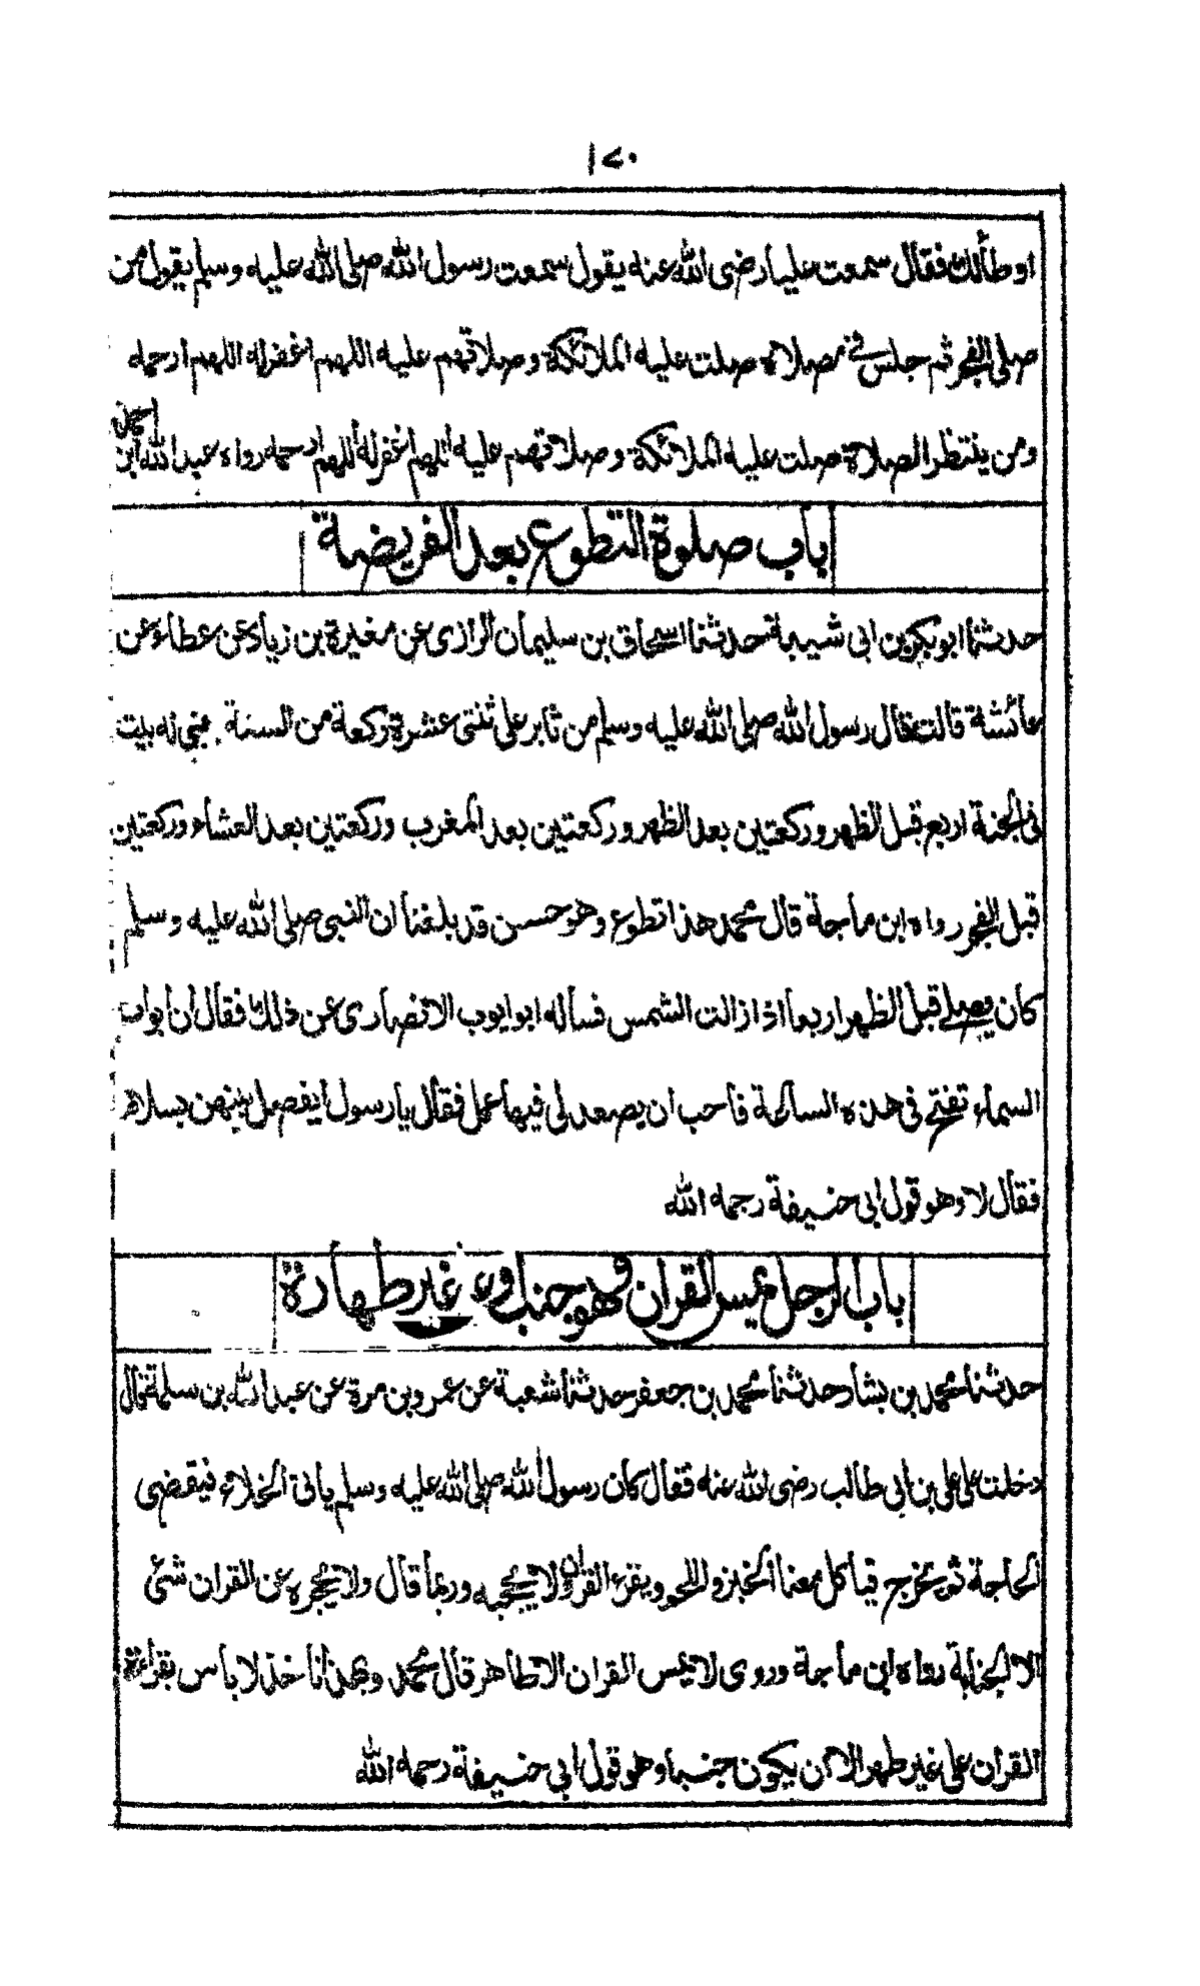 ١٧٠
او طألك فقال سمعت عليا رضى الله عنه يقول سمعت رسول الله صلى الله عليه وسلم يقول من
صلى الفجر ثم جلس فى مصلاه صلت عليه الملائكة وصلاتهم عليه اللهم اغفرله اللهم ارحمه
ومن ينتظر الصلاة صلت عليه الملائكة وصلاتهم عليه اللهم اغفرله اللهم ارحمه رواه عبدالله ابن
احمد
باب صلوة التطوع بعد الفريضة
حدثنا ابوبكر بن ابى شيبة حدثنا اسحاق بن سليمان الرازى عن مغيرة بن زياد عن عطاء عن
عائشة قالت قال رسول الله صلى الله عليه وسلم من ثابر على ثنتى عشرة ركعة من السنة بنى له بيت
فى الجنة اربع قبل الظهر وركعتين بعد الظهر وركعتين بعد المغرب وركعتين بعد العشاء وركعتين
قبل الفجر رواه ابن ماجة قال محمد هذا تطوع وهو حسن قد بلغنا ان النبى صلى الله عليه وسلم
كان يصلى قبل الظهر اربعا اذا زالت الشمس فساله ابو ايوب الانصارى عن ذلك فقال ان ابواب
السماء تفتح فى هذه الساعة فاحب ان يصعد لى فيها عمل فقال يا رسول ايفصل بينهن بسلام
فقال لا وهو قول ابى حنيفة رحمه الله
باب الرجل يمس القران وهو جنب او على غير طهارة
حدثنا محمد بن بشار حدثنا محمد بن جعفر حدثنا شعبة عن عمرو بن مرة عن عبدالله بن سلمة قال
دخلت على على بن ابى طالب رضى الله عنه فقال كان رسول الله صلى الله عليه وسلم ياتى الخلاء فيقضى
الحاجة ثم يخرج فياكل معنا الخبز واللحم ويقرء القران ولا يحجبه وربما قال ولا يحجزه عن القران شئ
الا الجنابة رواه ابن ماجة وروى لا يمس القران الا طاهر قال محمد وبهذا ناخذ لا باس بقراءة
القران على غير طهر الا ان يكون جنبا وهو قول ابى حنيفة رحمه الله